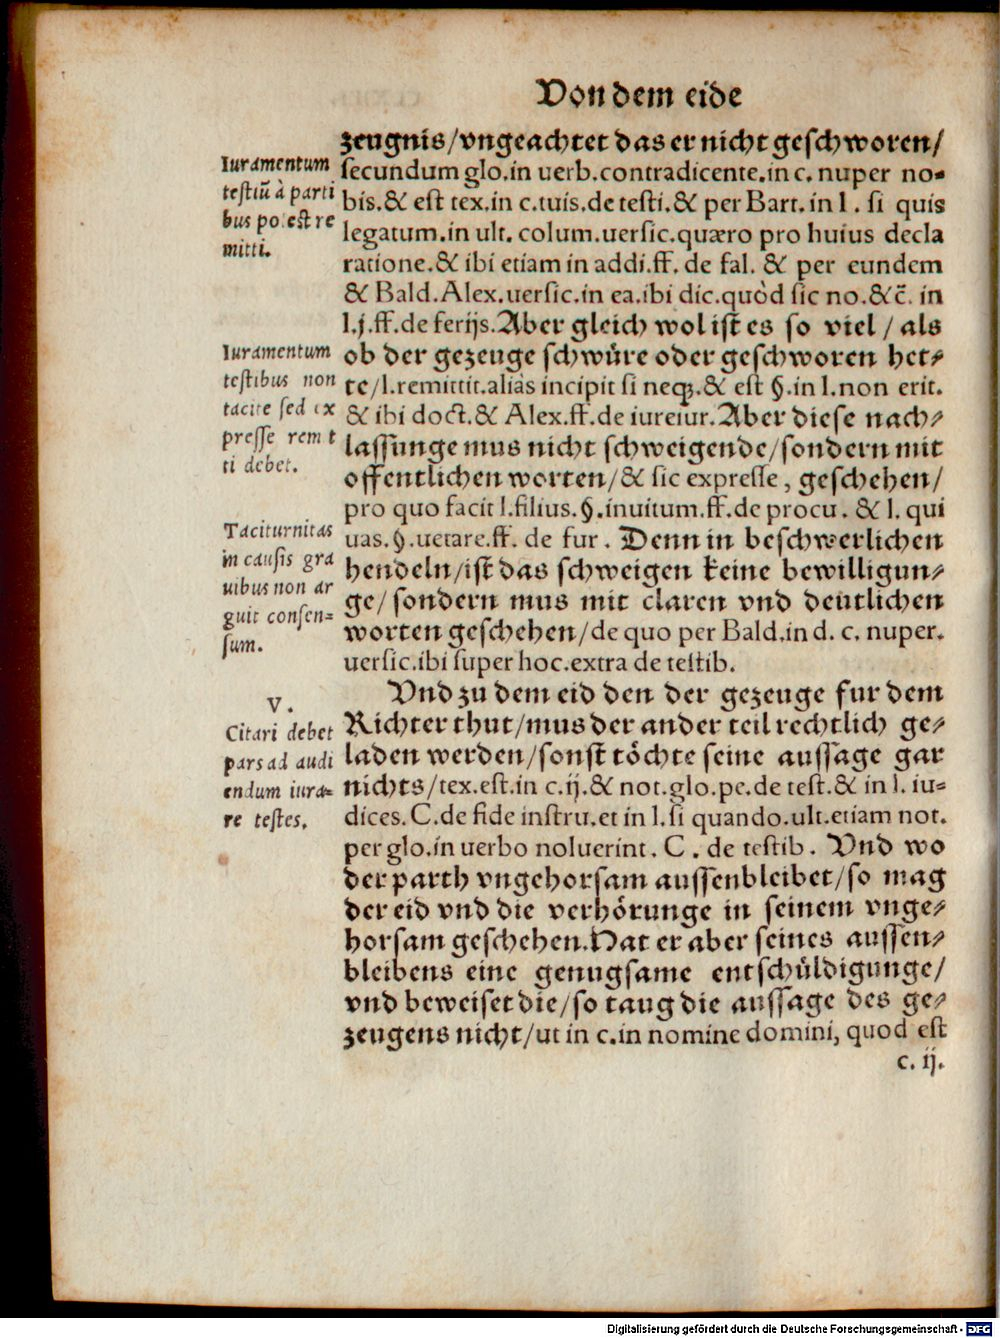 Von dem eide
zeugnis/vngeachtet das er nicht geschworen/
secundum glo.in uerb.contradicente.in c. nuper no-
bis.& est tex.in c.tuis.de testi.& per Bart. in l . si quis
legatum.in ult. colum.uersic.quæro pro huius decla
ratione.& ibi etiam in addi.ff. de fal. & per eundem
& Bald.Alex.uersic.in ea.ibi dic.quòd sic no.&c̄. in
l.j.ff.de ferijs.Aber gleich wol ist es so viel / als
ob der gezeuge schwůre oder geschworen het-
te/l.remittit.aliàs incipit si neqꝫ.& est §.in l.non erit.
& ibi doct.& Alex.ff.de iureiur.Aber diese nach-
lassunge mus nicht schweigende/sondern mit
offentlichen worten/& sic expresse , geschehen/
pro quo facit l.filius.§.inuitum.ff.de procu . & l. qui
uas.§.uetare.ff. de fur . Denn in beschwerlichen
hendeln/ist das schweigen keine bewilligun-
ge/ sondern mus mit claren vnd deutlichen
worten geschehen/de quo per Bald.in d. c. nuper.
uersic.ibi super hoc.extra de testib.
Vnd zu dem eid den der gezeuge fur dem
Richter thut/mus der ander teil rechtlich ge-
laden werden/sonst töchte seine aussage gar
nichts/tex.est.in c.ij.& not.glo.pe.de test.& in l. iu-
dices.C.de fide instru.et in l.si quando.ult.etiam not.
per glo.in uerbo noluerint . C . de testib . Vnd wo
der parth vngehorsam aussenbleibet/so mag
der eid vnd die verhörunge in seinem vnge-
horsam geschehen.Hat er aber seines aussen-
bleibens eine genugsame entschüldigunge/
vnd beweiset die/so taug die aussage des ge-
zeugens nicht/ut in c.in nomine domini, quod est
c. ij.
Iuramentum
testiū à parti
bus potest re
mitti.
Iuramentum
testibus non
tacite sed ex
presse remit
ti debet.
Taciturnitas
in causis gra
uibus non ar
guit consen-
sum.
V.
Citari debet
pars ad audi
endum iura-
re testes.
Digitalisierung gefördert durch die Deutsche Forschungsgemeinschaft - DFG